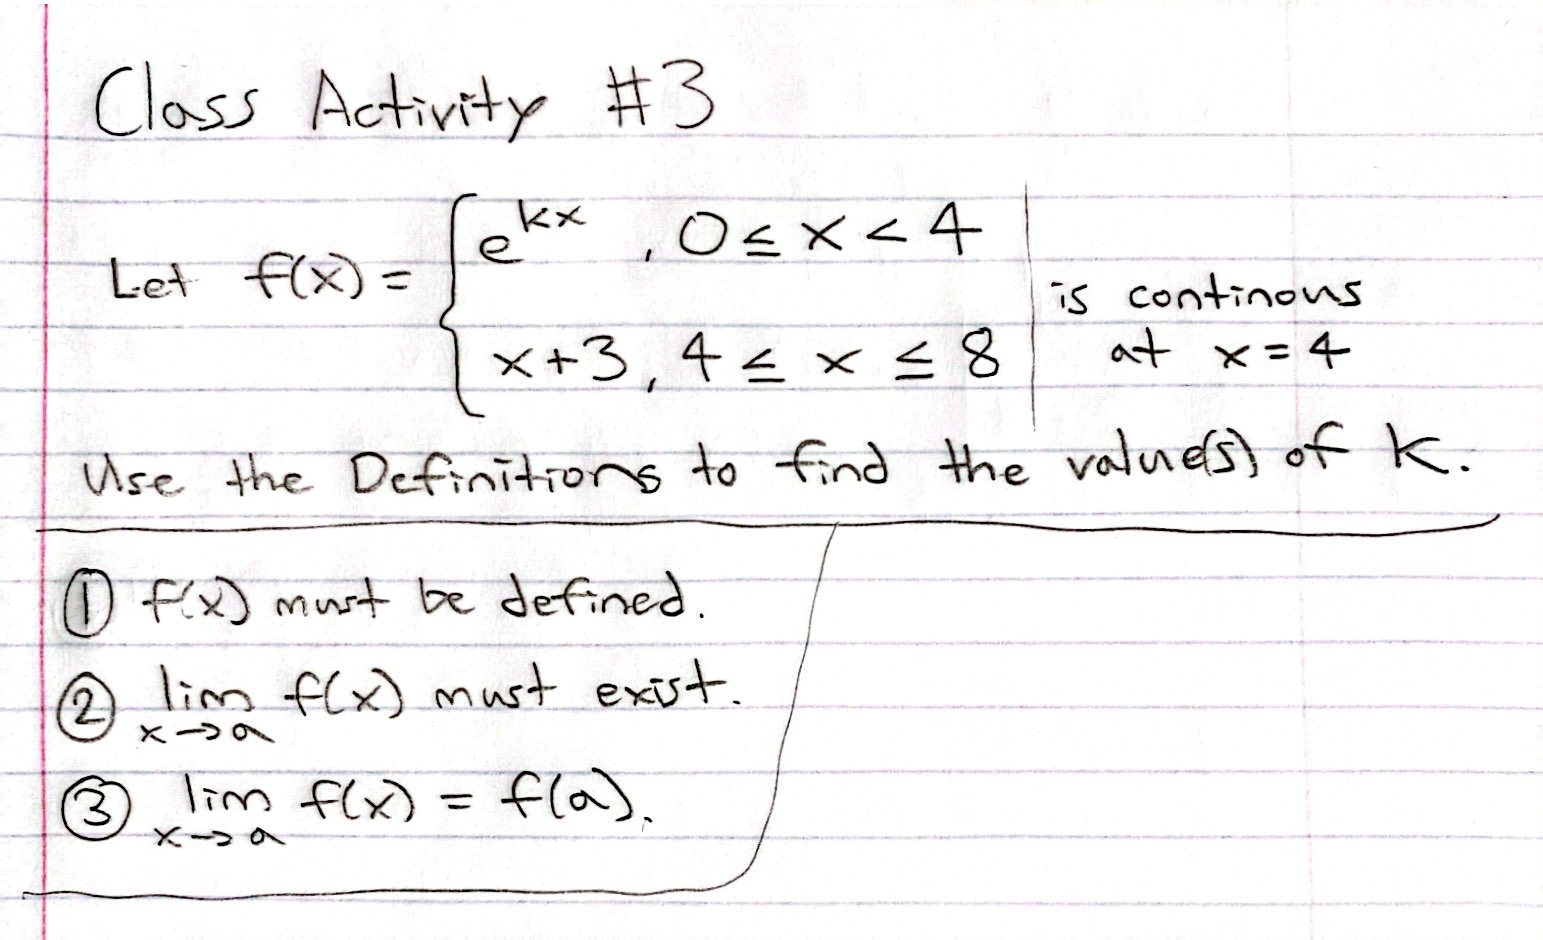 Class Activity #3
Let f(x) = { e^{kx} , 0 ≤ x < 4
x+3, 4 ≤ x ≤ 8
is continous
at x = 4
Use the Definitions to find the value(s) of k.
① f(x) must be defined.
② lim_{x→a} f(x) must exist.
③ lim_{x→a} f(x) = f(a).